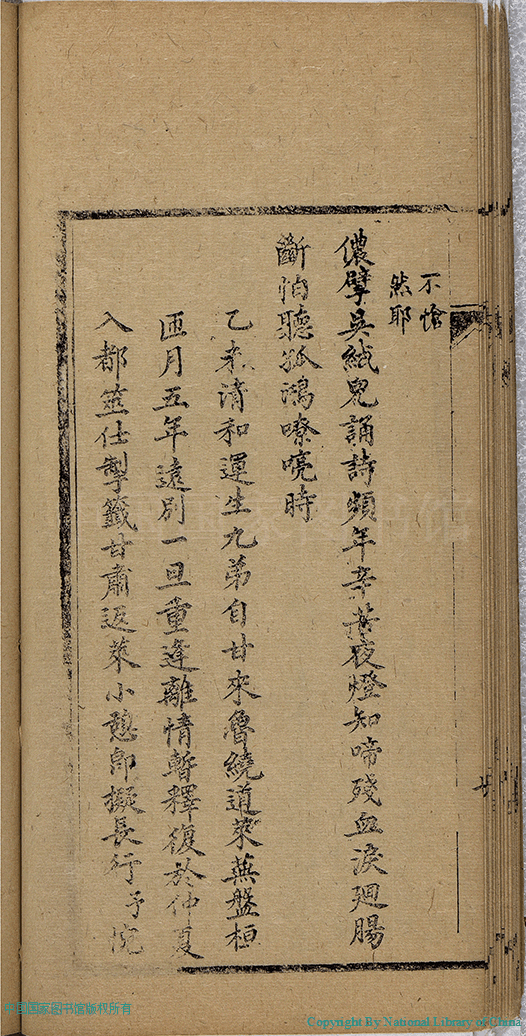 不愴
然耶
儂擘吳絨兒誦詩頻年辛苦夜燈知啼殘血淚廻腸
斷怕聽孤鴻嘹喨時
乙未清和運生九弟自甘來魯繞道萊蕪盤桓
匝月五年遠別一旦重逢離情暫釋復於仲夏
入都筮仕掣籤甘肅返萊小憩即擬長行予宛
中国国家图书馆版权所有
Copyright By National Library of China